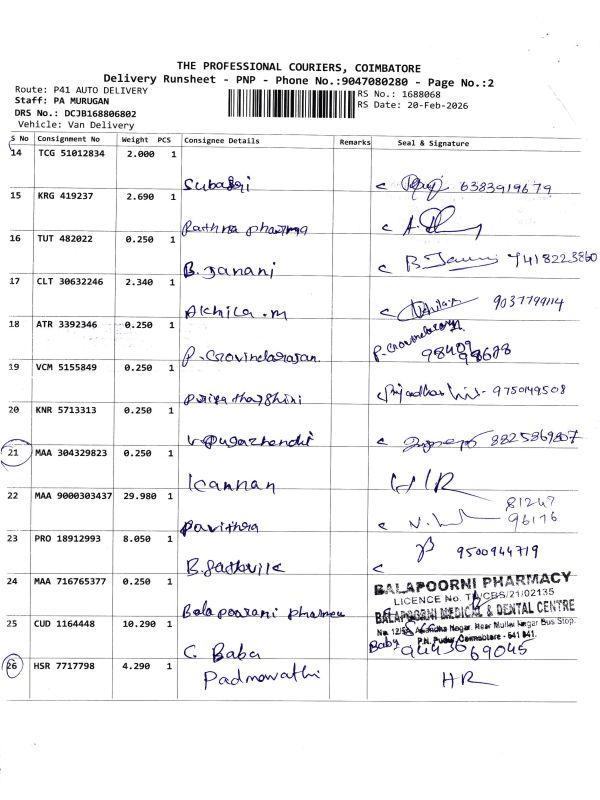 THE PROFESSIONAL COURIERS, COIMBATORE
Delivery Runsheet - PNP - Phone No.:9047080280 - Page No.:2
Route: P41 AUTO DELIVERY
Staff: PA MURUGAN
DRS No.: DCJB168806802
Vehicle: Van Delivery
RS No.: 1688068
RS Date: 20-Feb-2026
S No Consignment No Weight PCS Consignee Details Remarks Seal & Signature
14 TCG 51012834 2.000 1
Subashri 6383919679
15 KRG 419237 2.690 1
Rathna pharma
16 TUT 482022 0.250 1
B. Janani B. Janani 7418223860
17 CLT 30632246 2.340 1
Akhila .m Akhila.m 9037799114
18 ATR 3392346 0.250 1
P. Govindarajan. P. Govindarajan
19 VCM 5155849 0.250 1
Priyadharshini Priyadharshini - 9750149508
20 KNR 5713313 0.250 1
V. Pugazhendhi 8825869807
21 MAA 304329823 0.250 1
Kannan H/R
22 MAA 9000303437 29.980 1
Pavithra 81247
96176
23 PRO 18912993 8.050 1
B. 9500944719
24 MAA 716765377 0.250 1
Bala poorani pharmacy
BALAPOORNI PHARMACY
LICENCE No. TN/CBS/21/02135
BALAPOORNI MEDICAL & DENTAL CENTRE
Nagar, Near Mullai Nagar Bus Stop.
P.N. Pudur, Coimbatore - 641 041.
25 CUD 1164448 10.290 1
C. Baba Baby 9443669045
26 HSR 7717798 4.290 1
Padmavathi HR